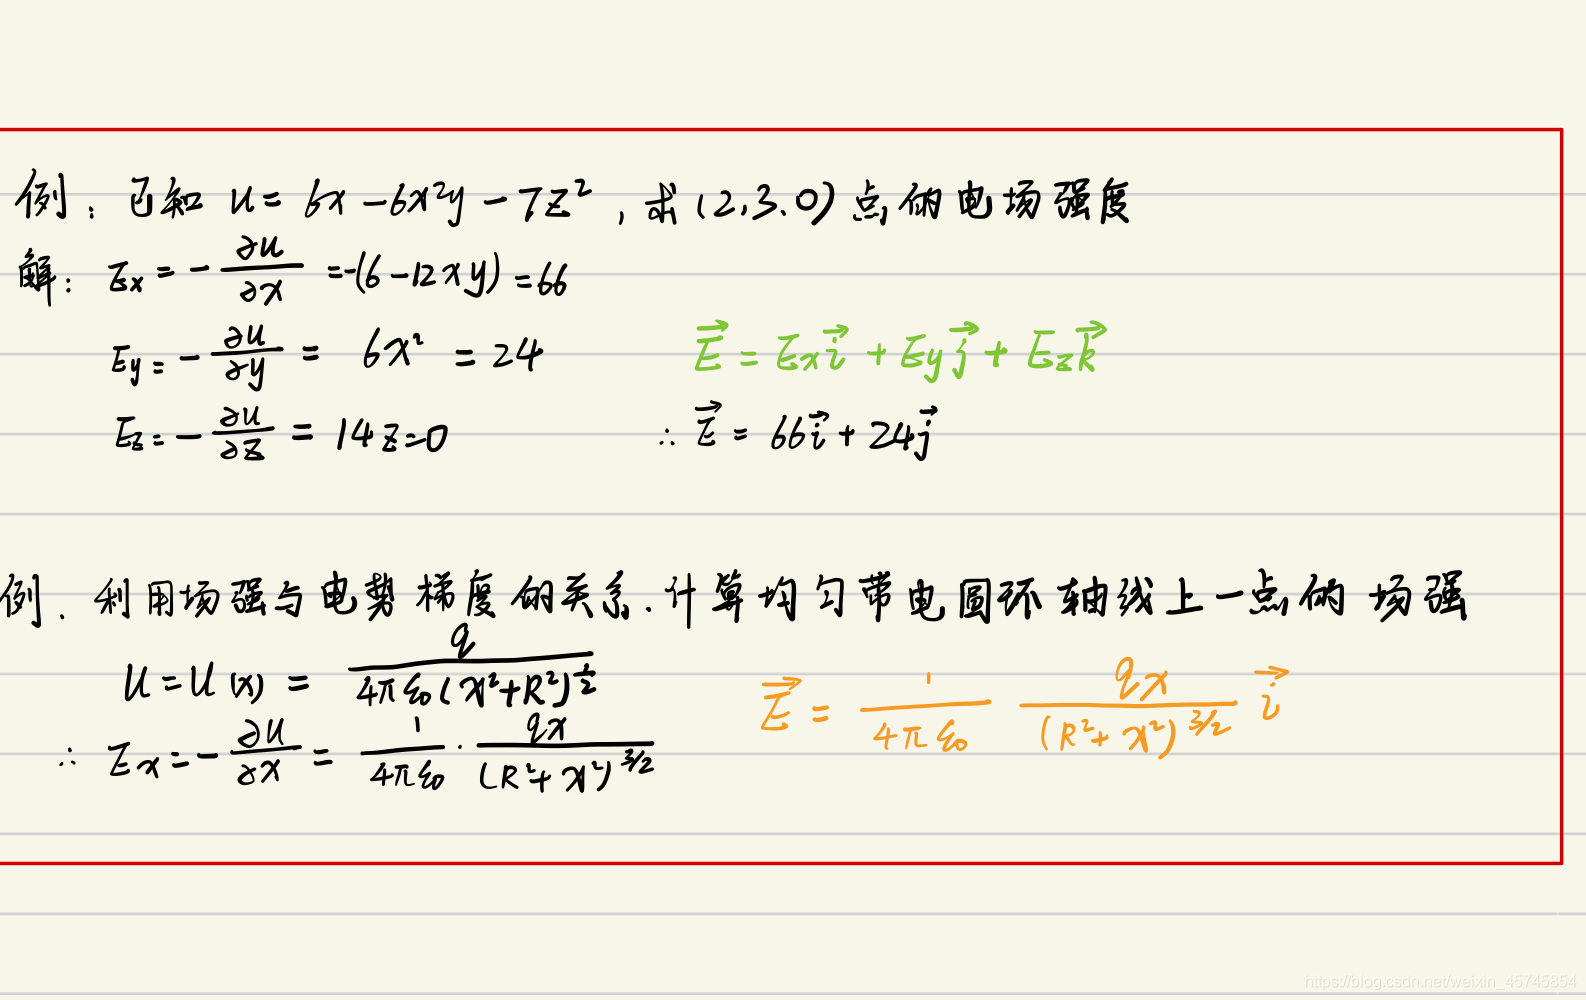 例：已知 u = 6x - 6x²y - 7z²，求(2,3,0)点的电场强度
解：Ex = - ∂u/∂x = -(6-12xy) = 66
Ey = - ∂u/∂y = 6x² = 24
E⃗ = Exi⃗ + Eyj⃗ + Ezk⃗
Ez = - ∂u/∂z = 14z = 0
∴ E⃗ = 66i⃗ + 24j⃗
例. 利用场强与电势梯度的关系. 计算均匀带电圆环轴线上一点的场强
U = U(x) = q/4πε₀(x²+R²)^½
E⃗ = 1/4πε₀ qx/(R²+x²)^3/2 i⃗
∴ Ex = - ∂u/∂x = 1/4πε₀ · qx/(R²+x²)^3/2
https://blog.csdn.net/weixin_45745854